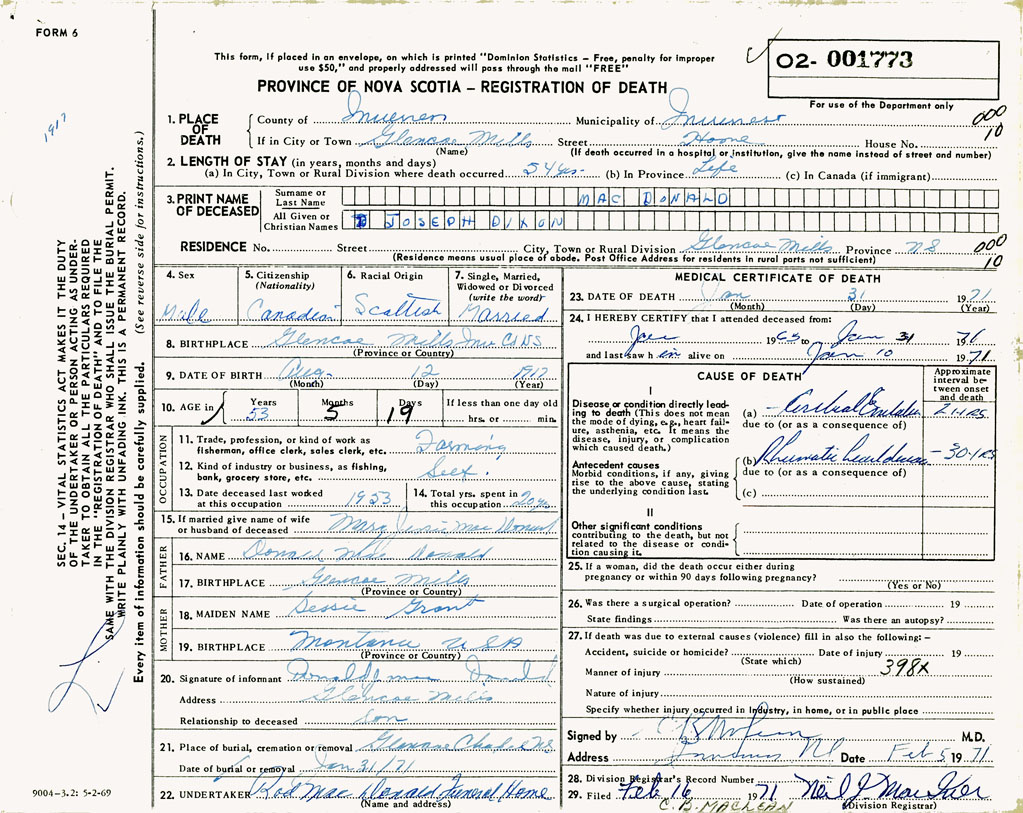 FORM 6
This form, if placed in an envelope, on which is printed "Dominion Statistics – Free, penalty for improper
use $50," and properly addressed will pass through the mail "FREE"
02- 001773
For use of the Department only
PROVINCE OF NOVA SCOTIA – REGISTRATION OF DEATH
1917
1. PLACE OF DEATH
County of Inverness Municipality of Inverness 000
If in City or Town Glencoe Mills Street Home House No. 10
(Name) (If death occurred in a hospital or institution, give the name instead of street and number)
2. LENGTH OF STAY (in years, months and days)
(a) In City, Town or Rural Division where death occurred 54 yrs. (b) In Province Life (c) In Canada (if immigrant)
3. PRINT NAME OF DECEASED
Surname or Last Name MAC DONALD
All Given or Christian Names JOSEPH DIXON
RESIDENCE No. Street City, Town or Rural Division Glencoe Mills Province NS 000
(Residence means usual place of abode. Post Office Address for residents in rural parts not sufficient) 10
4. Sex
Male
5. Citizenship
(Nationality)
Canadian
6. Racial Origin
Scottish
7. Single, Married,
Widowed or Divorced
(write the word)
Married
8. BIRTHPLACE Glencoe Mills Inv Co NS
(Province or Country)
9. DATE OF BIRTH Aug. 12 1917
(Month) (Day) (Year)
10. AGE in Years 53 Months 5 Days 19 If less than one day old
hrs. or min.
OCCUPATION
11. Trade, profession, or kind of work as
fisherman, office clerk, sales clerk, etc. Farming
12. Kind of industry or business, as fishing,
bank, grocery store, etc. Self
13. Date deceased last worked
at this occupation 1953
14. Total yrs. spent in
this occupation 20 yrs
15. If married give name of wife
or husband of deceased Mary Jessie Mac Donald
FATHER
16. NAME Donald Mac Donald
17. BIRTHPLACE Glencoe Mills
(Province or Country)
MOTHER
18. MAIDEN NAME Grant
19. BIRTHPLACE Montana U S A
(Province or Country)
20. Signature of informant Donald J Mac Donald
Address Glencoe Mills
Relationship to deceased Son
21. Place of burial, cremation or removal Glencoe N.S.
Date of burial or removal Jan 31/71
22. UNDERTAKER Rod Mac Donald Funeral Home
(Name and address)
MEDICAL CERTIFICATE OF DEATH
23. DATE OF DEATH Jan 31 1971
(Month) (Day) (Year)
24. I HEREBY CERTIFY that I attended deceased from:
Jan 1965 to Jan 31 1971
and last saw h im alive on Jan 10 1971
CAUSE OF DEATH
Approximate
interval be-
tween onset
and death
I
Disease or condition directly lead-
ing to death (This does not mean
the mode of dying, e.g., heart fail-
ure, asthenia, etc. It means the
disease, injury, or complication
which caused death.)
(a) Cerebral Embolus
due to (or as a consequence of)
Antecedent causes
Morbid conditions, if any, giving
rise to the above cause, stating
the underlying condition last.
(b) Rheumatic 30 YRS
due to (or as a consequence of)
(c)
II
Other significant conditions
contributing to the death, but not
related to the disease or condi-
tion causing it.
25. If a woman, did the death occur either during
pregnancy or within 90 days following pregnancy?
(Yes or No)
26. Was there a surgical operation? Date of operation 19
State findings Was there an autopsy?
27. If death was due to external causes (violence) fill in also the following:–
Accident, suicide or homicide? Date of injury 19
(State which)
Manner of injury 398X
(How sustained)
Nature of injury
Specify whether injury occurred in Industry, in home, or in public place
Signed by M.D.
Address Inverness NS Date Feb 5 1971
28. Division Registrar's Record Number
29. Filed Feb 16 1971 Neil J
C. B. MACLEAN (Division Registrar)
SEC. 14 – VITAL STATISTICS ACT MAKES IT THE DUTY
OF THE UNDERTAKER OR PERSON ACTING AS UNDER-
TAKER TO OBTAIN ALL THE PARTICULARS REQUIRED
IN THE "REGISTRATION OF DEATH" AND TO FILE THE
SAME WITH THE DIVISION REGISTRAR WHO SHALL ISSUE THE BURIAL PERMIT.
WRITE PLAINLY WITH UNFADING INK. THIS IS A PERMANENT RECORD.
Every item of information should be carefully supplied. (See reverse side for instructions.)
9004-3.2: 5-2-69